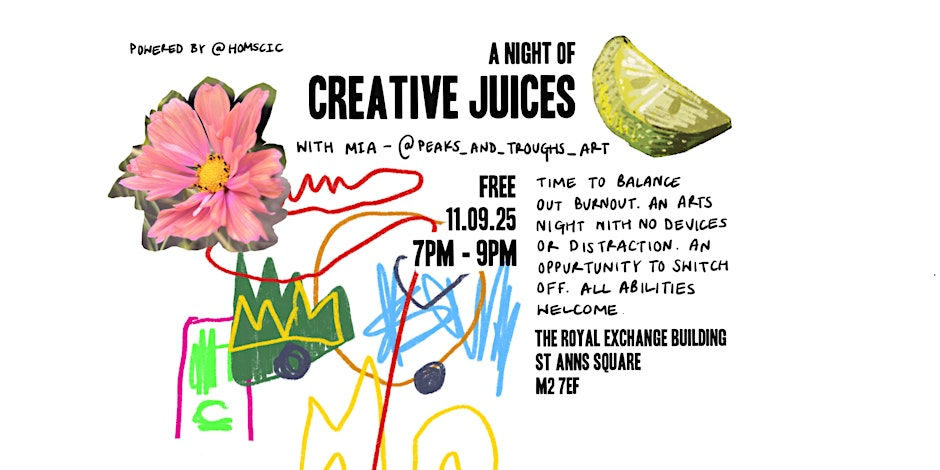 POWERED BY @HOMSCIC
A NIGHT OF
CREATIVE JUICES
WITH MIA - @PEAKS_AND_TROUGHS_ART
FREE
11.09.25
7PM - 9PM
TIME TO BALANCE
OUT BURNOUT. AN ARTS
NIGHT WITH NO DEVICES
OR DISTRACTION. AN
OPPURTUNITY TO SWITCH
OFF. ALL ABILITIES
WELCOME.
THE ROYAL EXCHANGE BUILDING
ST ANNS SQUARE
M2 7EF